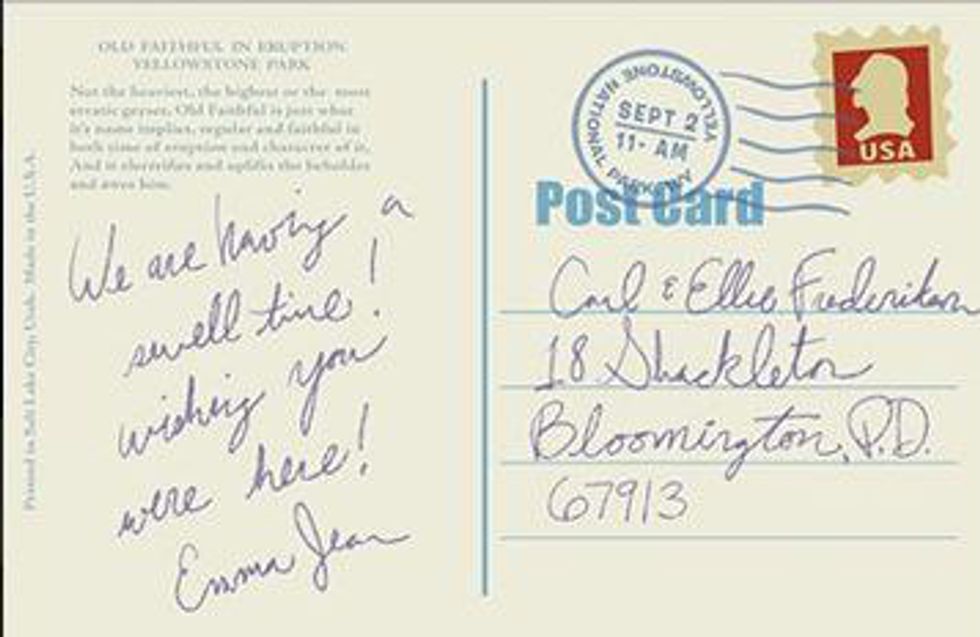 OLD FAITHFUL IN ERUPTION
YELLOWSTONE PARK
Not the heaviest, the highest or the most
erratic geyser, Old Faithful is just what
it's name implies, regular and faithful in
both time of eruption and character of it.
And it electrifies and uplifts the beholder
and awes him.
We are having a
swell time!
wishing you
were here!
Emma Jean
Printed in Salt Lake City, Utah. Made in the U.S.A.
YELLOWSTONE NATIONAL PARK WY
SEPT 2
11- AM
USA
Post Card
Carl & Ellie Frederiksen
18 Shackleton
Bloomington, P.D.
67913